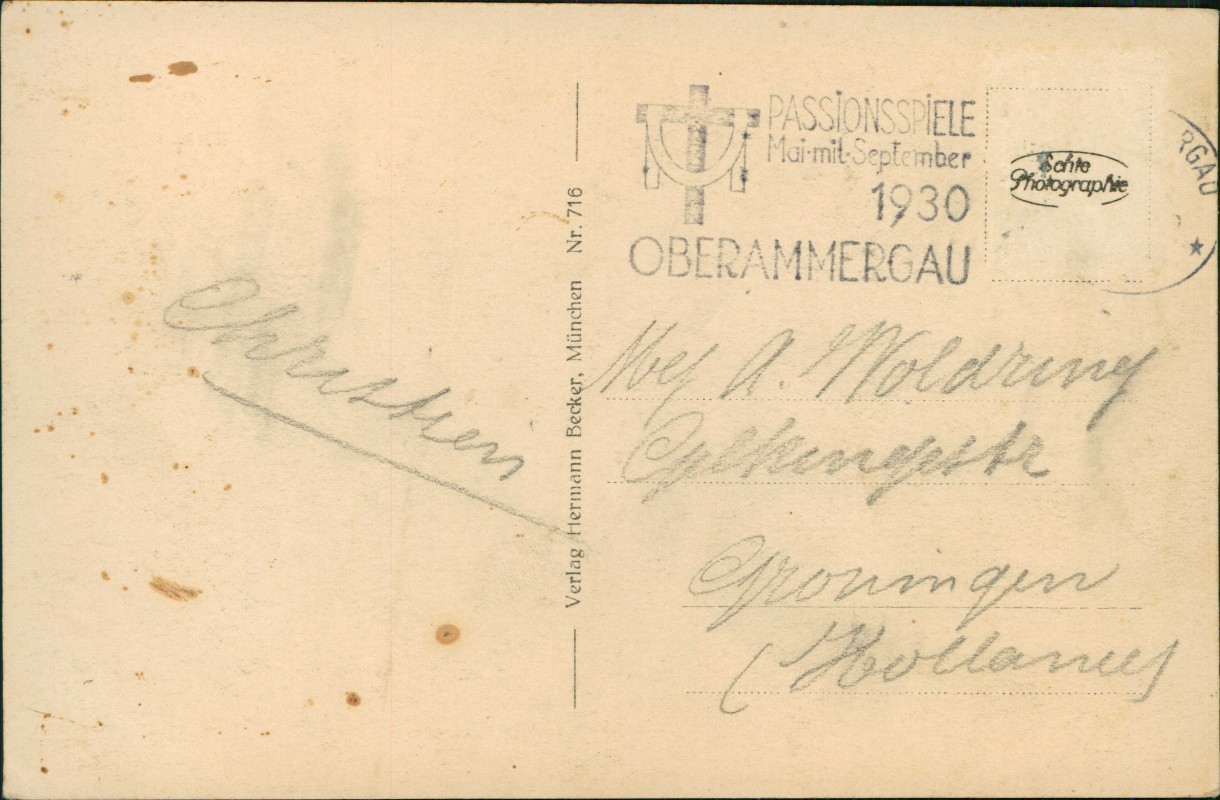 PASSIONSSPIELE
Mai-mit-September
1930
OBERAMMERGAU
RGAU
Echte
Photographie
Verlag Hermann Becker, München Nr. 716
Christien
Mej A. Woldring
Groningen
(Holland)